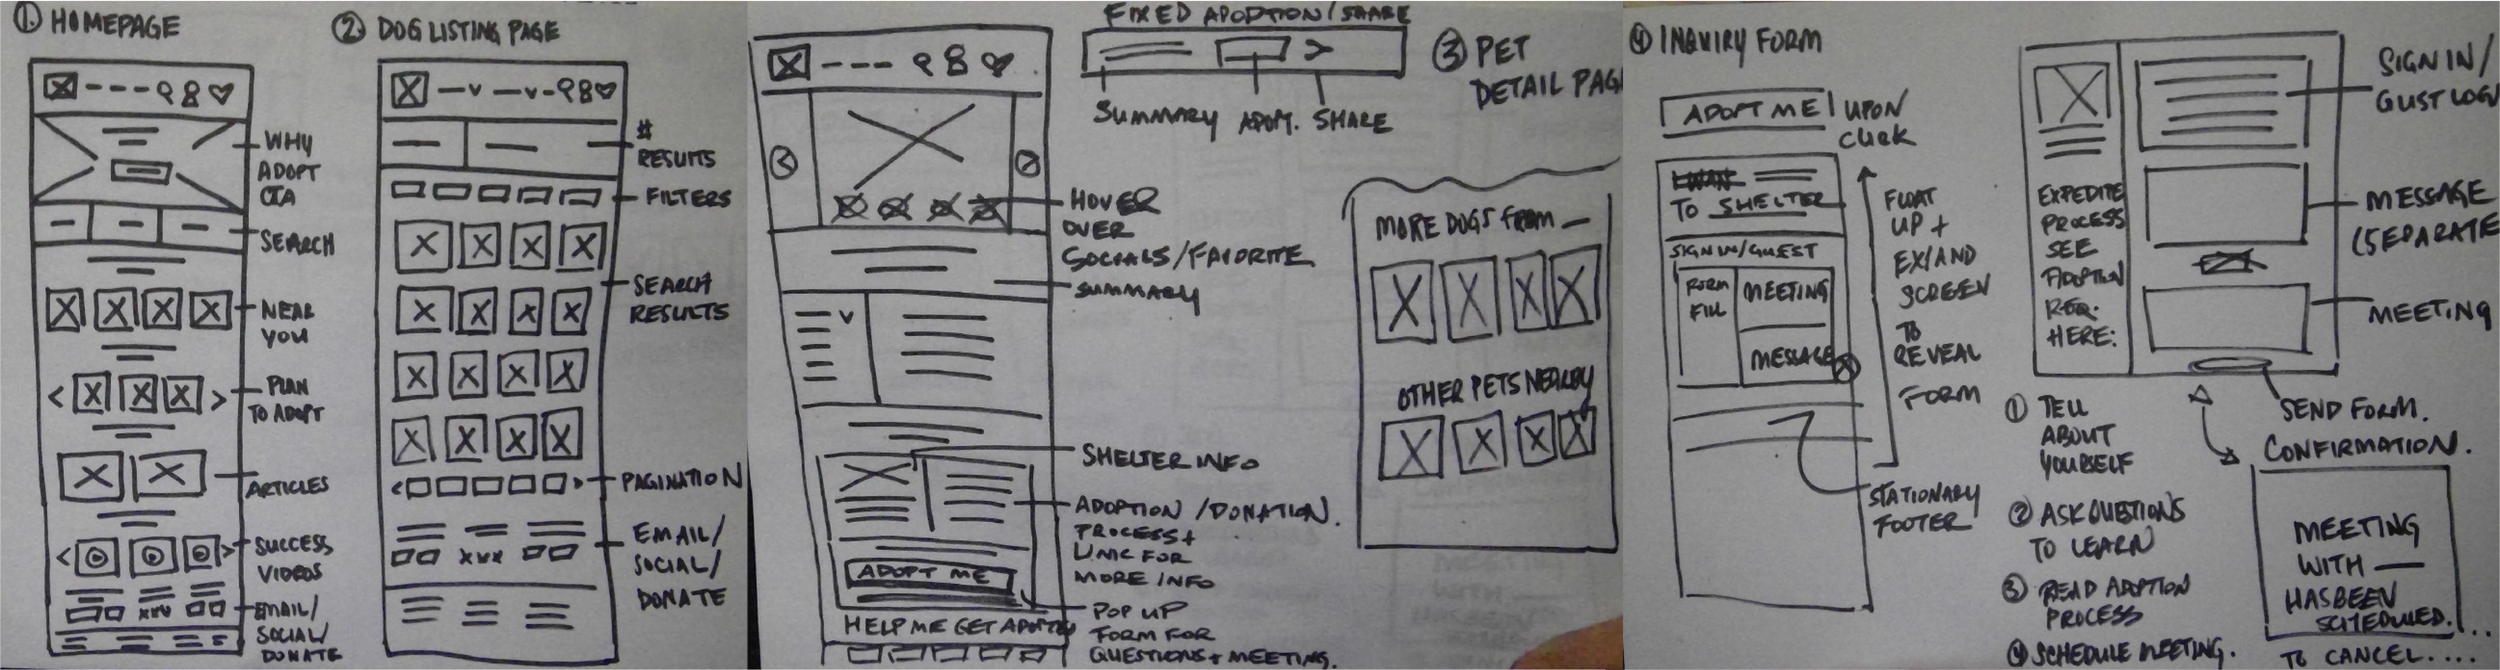 ① HOMEPAGE
WHY
ADOPT
CTA
SEARCH
NEAR
YOU
PLAN
TO ADOPT
ARTICLES
SUCCESS
VIDEOS
EMAIL/
SOCIAL/
DONATE
② DOG LISTING PAGE
#
RESULTS
FILTERS
SEARCH
RESULTS
PAGINATION
EMAIL/
SOCIAL/
DONATE
FIXED ADOPTION/SHARE
SUMMARY ADOPT. SHARE
③ PET
DETAIL PAG
HOVER
OVER
SOCIALS/FAVORITE
SUMMARY
SHELTER INFO
ADOPTION/DONATION.
PROCESS+
LINK FOR
MORE INFO
ADOPT ME
POP UP
FORM FOR
QUESTIONS+MEETING.
HELP ME GET ADOPTED
MORE DOGS FROM —
OTHER PETS NEARBY
④ INQUIRY FORM
ADOPT ME
UPON
CLICK
TO SHELTER
SIGN IN/GUEST
FORM
FILL
MEETING
MESSAGE
FLOAT
UP +
EXPAND
SCREEN
TO
REVEAL
FORM
STATIONARY
FOOTER
EXPEDITE
PROCESS
SEE
ADOPTION
REQ.
HERE:
SIGN IN/
GUST LOGI
MESSAGE
(SEPARATE
MEETING
SEND FORM.
CONFIRMATION.
① TELL
ABOUT
YOURSELF
② ASK QUESTIONS
TO LEARN
③ READ ADOPTION
PROCESS
④ SCHEDULE MEETING.
MEETING
WITH —
HAS BEEN
SCHEDULED.
TO CANCEL....